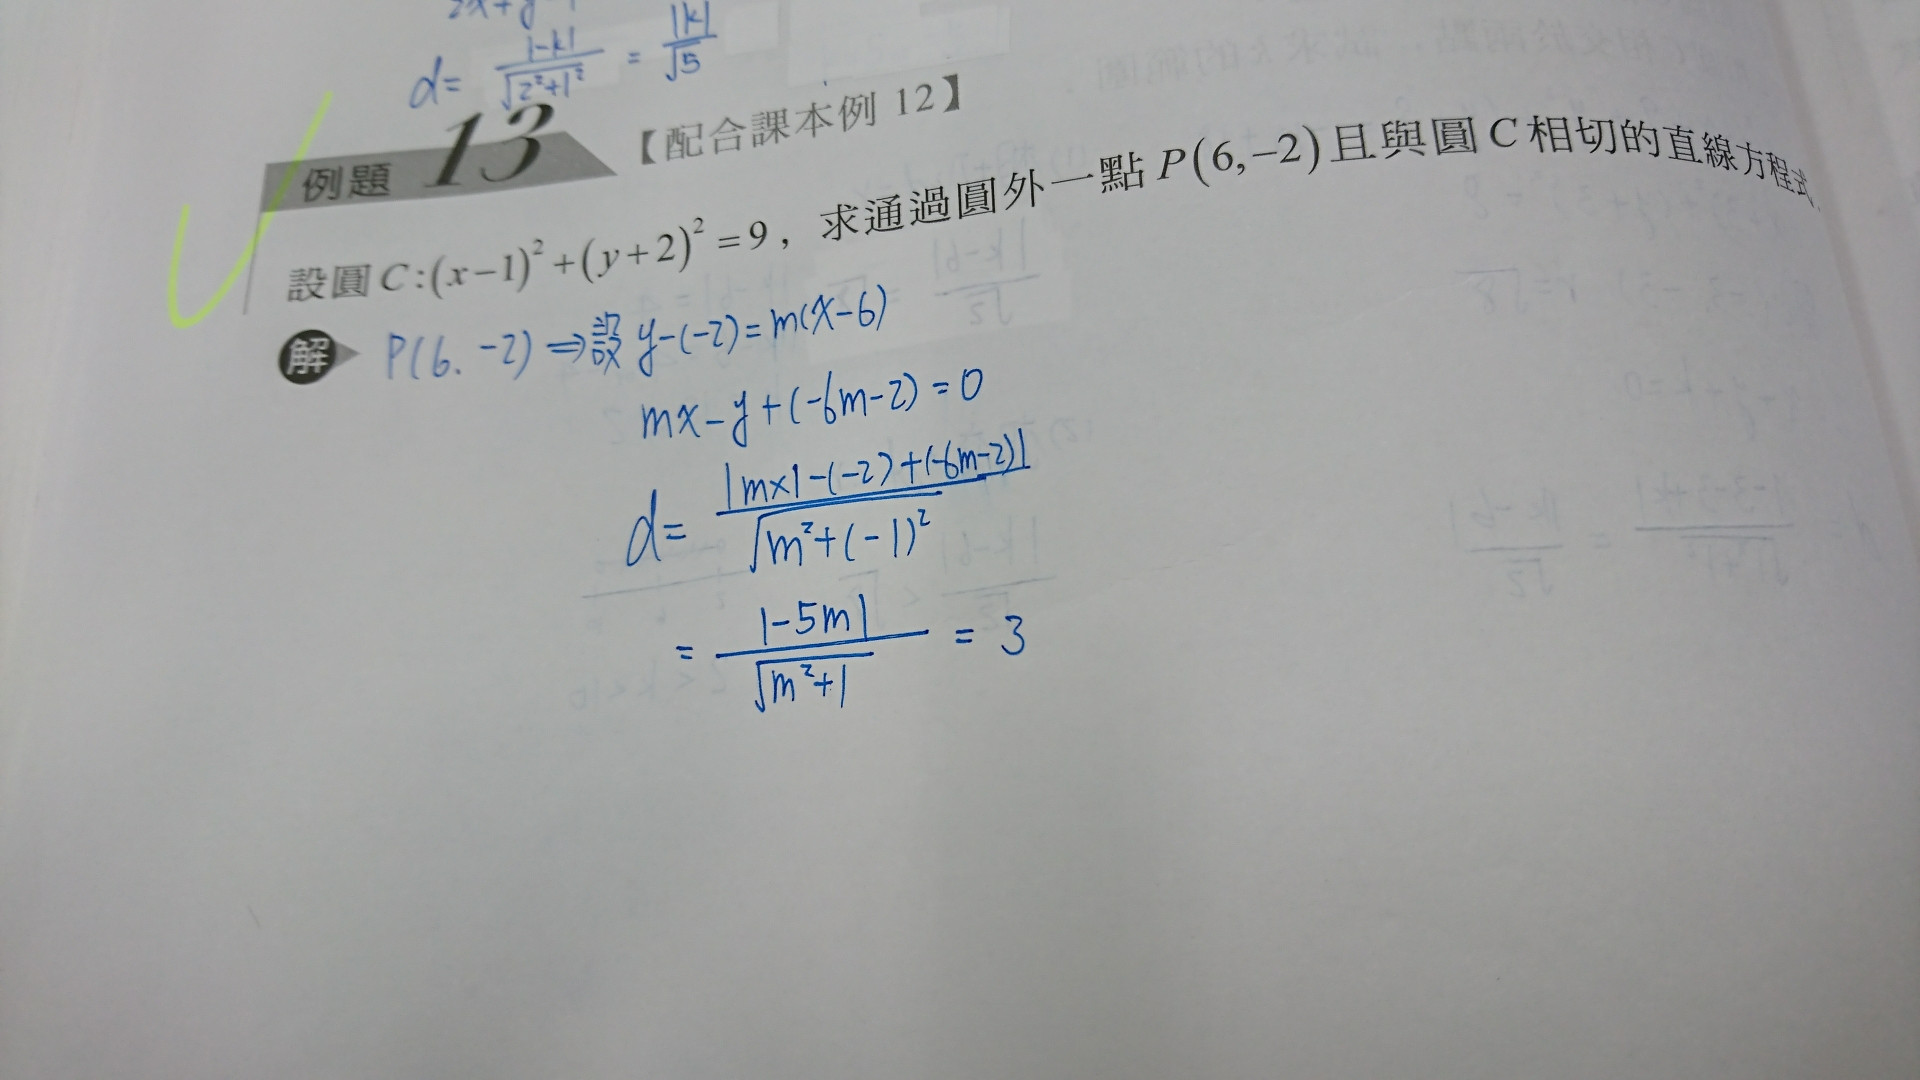 2x+y
d= |-k|/√2²+1² = |k|/√5
例題 13 【配合課本例 12】
設圓 C:(x−1)²+(y+2)²=9，求通過圓外一點 P(6,−2)且與圓 C 相切的直線方程式
解 P(6. -2) ⇒ 設 y-(-2)=m(x-6)
mx-y+(-6m-2)=0
d= |mx1-(-2)+(-6m-2)|/√m²+(-1)²
= |-5m|/√m²+1 = 3